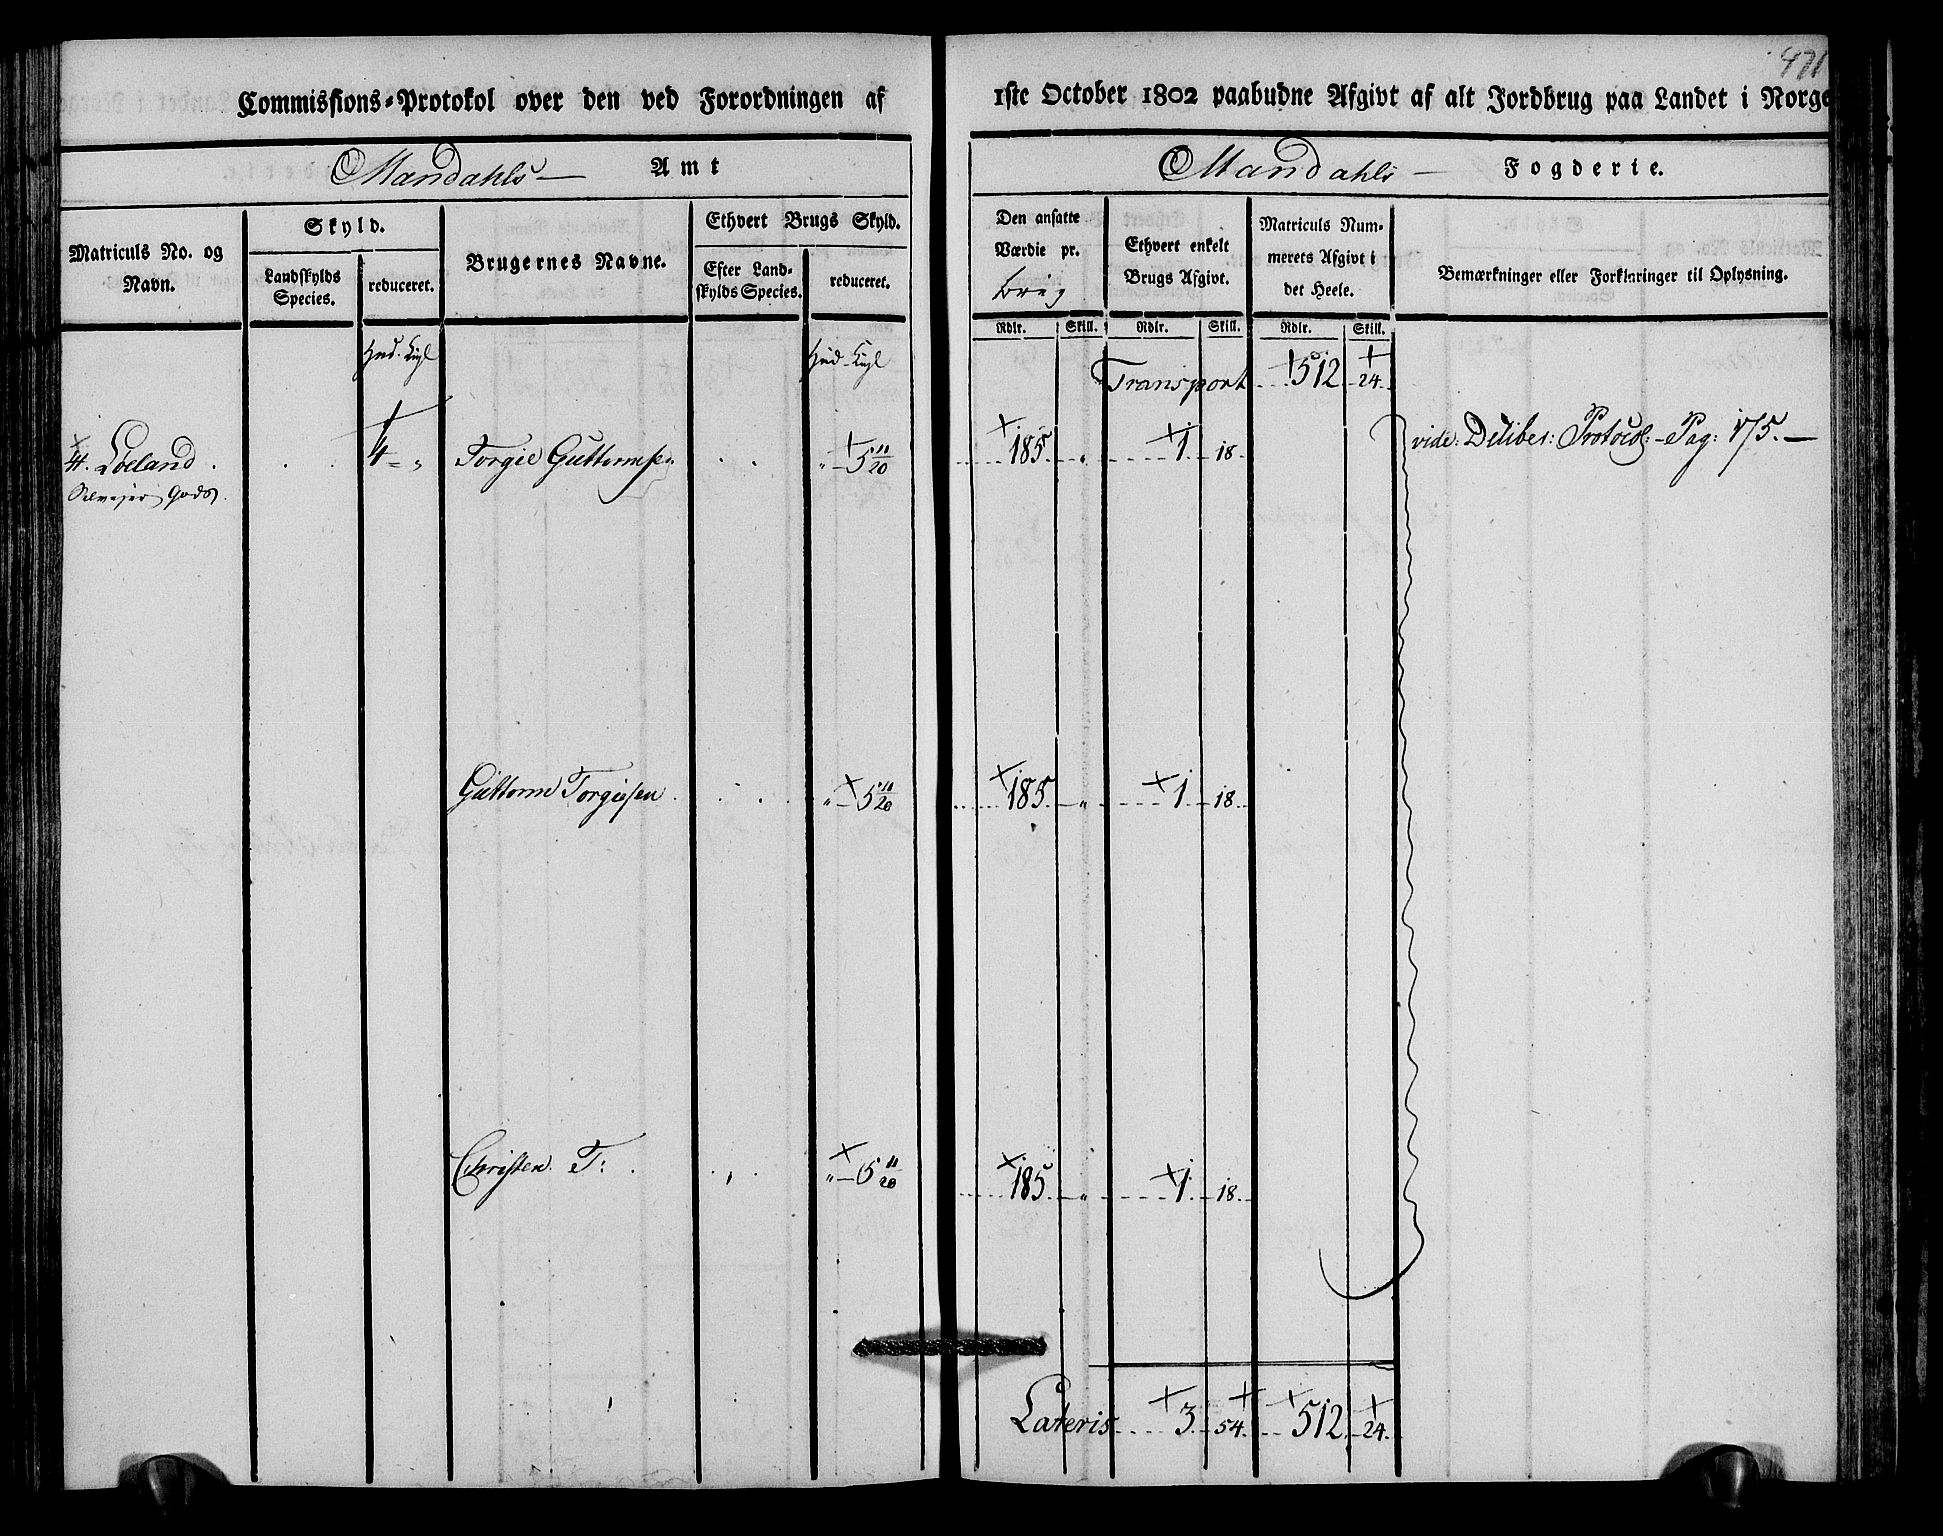 471
Commissions=Protokol over den ved Forordningen af 1ste October 1802 paabudne Afgivt af alt Jordbrug paa Landet i Norge
Mandahls — Amt
Mandahls — Fogderie.
Matriculs No. og Navn.
Skyld.
Landskylds Species.
reduceret.
Brugernes Navne.
Ethvert Brugs Skyld.
Efter Land-skylds Species.
reduceret.
Den ansatte Værdie pr. brug
Ethvert enkelt Brugs Afgivt.
Matriculs Num-merets Afgivt i det Heele.
Bemærkninger eller Forklaringer til Oplysning.
Rdlr. Skill. Rdlr. Skill. Rdlr. Skill.
Hud. Kigl Hud. Kigl
Transport 512 24.
4. Loeland 4 = „ Torgie Guttormsen „ — 5 11/20 185 „ 1 18 vide: Deliber: Protocol: - Pag: 175. —
Gods
Guttorm Torgiesen „ — 5 11/20 185 „ 1 18
Christen T: „ — 5 11/20 185 „ 1 18
Lateris 3 54 512 24